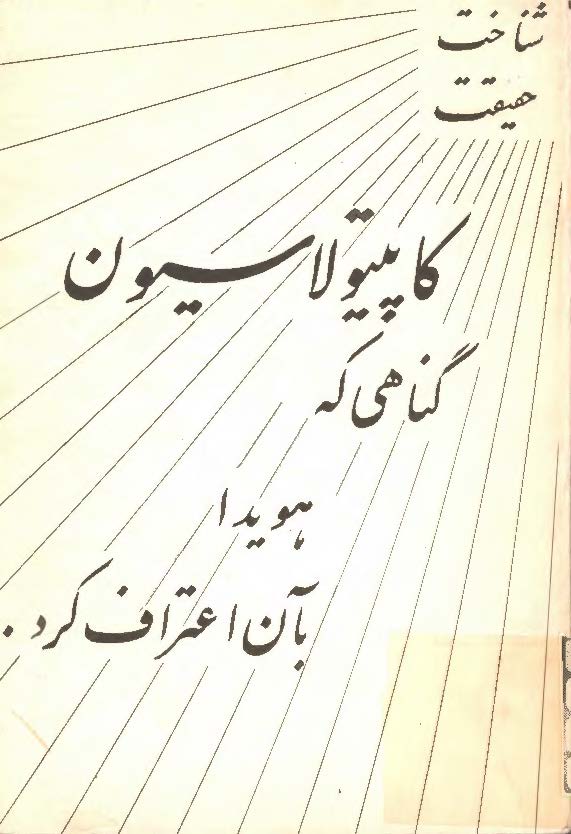 شناخت
حقیقت
کاپیتولاسیون
گناهی که
هویدا
بآن اعتراف کرد.